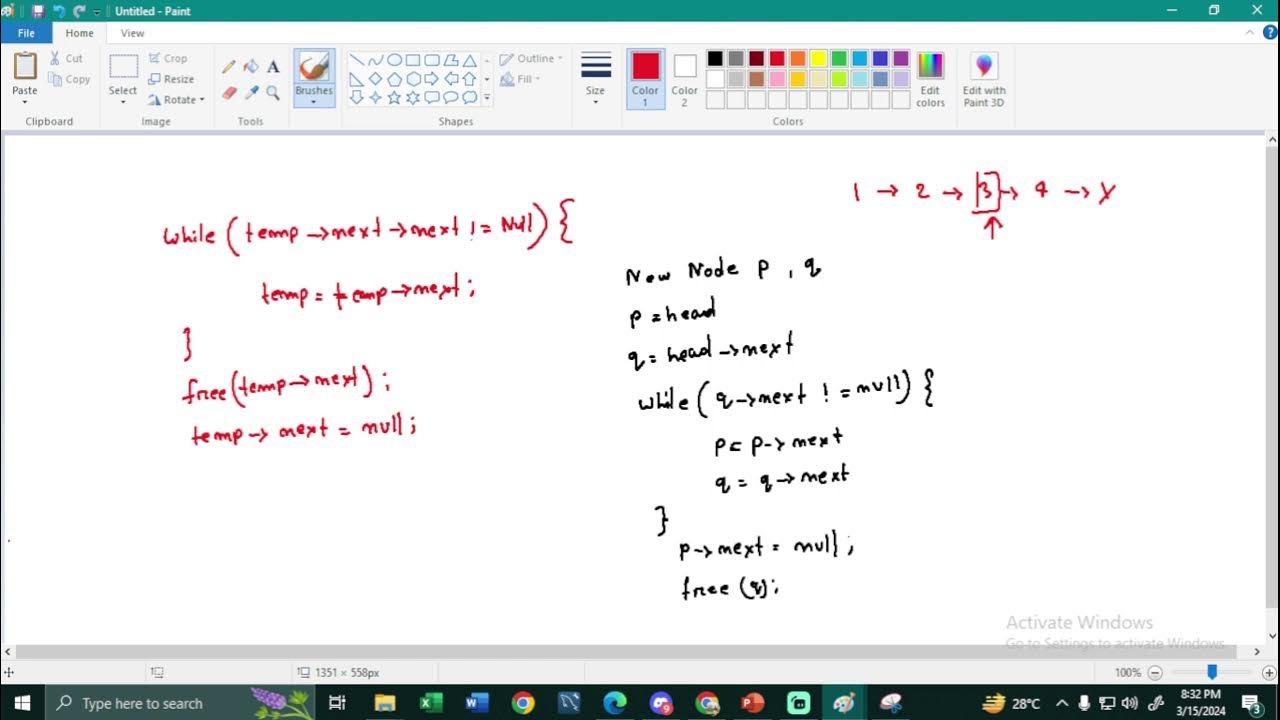 Untitled - Paint
File
Home
View
Paste
Cut
Copy
Clipboard
Select
Crop
Resize
Rotate
Image
Tools
Brushes
Shapes
Outline
Fill
Size
Color 1
Color 2
Colors
Edit colors
Edit with Paint 3D
1 → 2 → 3 → 4 → X
while (temp → next → next != Null) {
temp = temp → next ;
}
free (temp → next) ;
temp → next = null ;
New Node p , q
p = head
q = head → next
while (q → next != null) {
p = p → next
q = q → next
}
p → next = null ;
free (q) ;
Activate Windows
Go to Settings to activate Windows.
1351 × 558px
100%
Type here to search
28°C
8:32 PM
3/15/2024